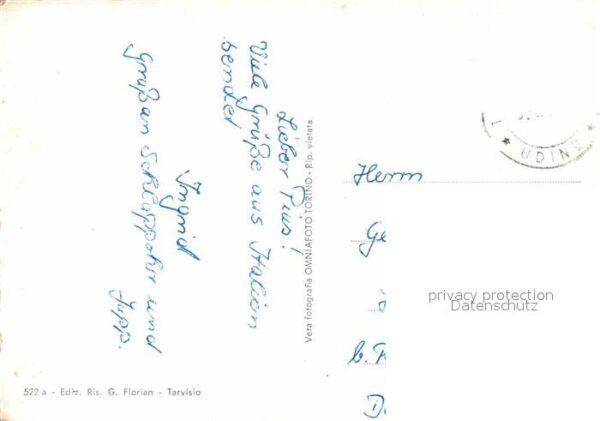 Lieber Pius!
Viele Grüße aus Italien
sendet
Ingrid
Gruß an Schlappohr und
Jupp.
Vera fotografia OMNIAFOTO TORINO - Rip. vietata
522 a - Ediz. Ris. G. Florian - Tarvisio
UDINE
Herrn
Ge
b.
D
privacy protection
Datenschutz